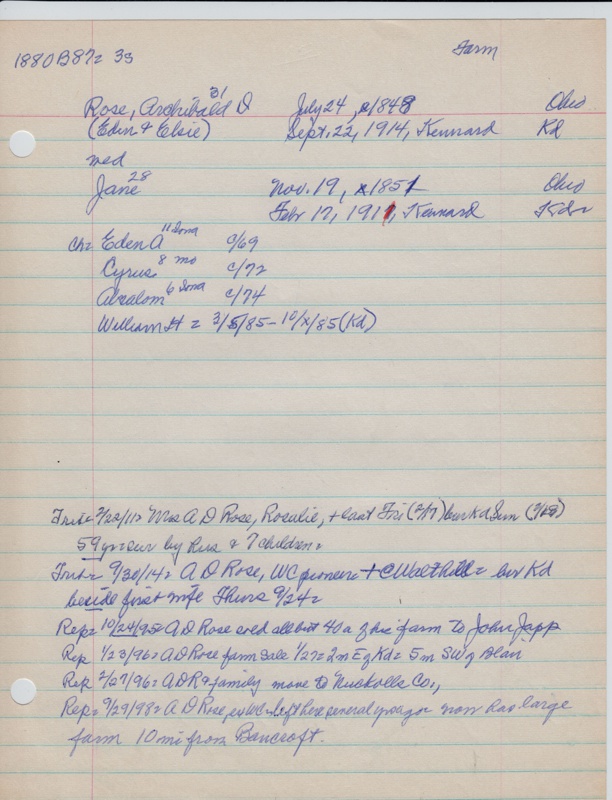 1880B872 33
Farm
Rose, Archibald D 31 July 24, c/1848 Ohio
(Eden + Elsie) Sept. 22, 1914, Kennard Kd
wed
Jane 28 Nov. 19, x1851 Ohio
Febr 17, 1911, Kennard Kd
Ch= Eden A 11 Iowa c/69
Cyrus 8 mo c/72
Absalom 6 Iowa c/74
William H = 3/5/85 - 10/x/85 (Kd)
Trib= 2/22/11= Mrs A D Rose, Rosalie, + last Fri (2/17) bur Kd Sun
59 yr sur by hus & 7 children=
Trib= 9/30/14= A D Rose, WC pioneer + @ Walthill= bur Kd
beside first wife Thurs 9/24=
Rep= 10/24/95= A D Rose sold all but 40 a of his farm to John Japp
Rep 1/23/96= A D Rose farm sale 1/27= 2 m E of Kd= 5 m SW of Blair
Rep 2/27/96= A D R & family move to Nuckolls Co.,
Rep= 9/29/98= A D Rose, ex WC left here several yrs ago now has large
farm 10 mi from Bancroft.